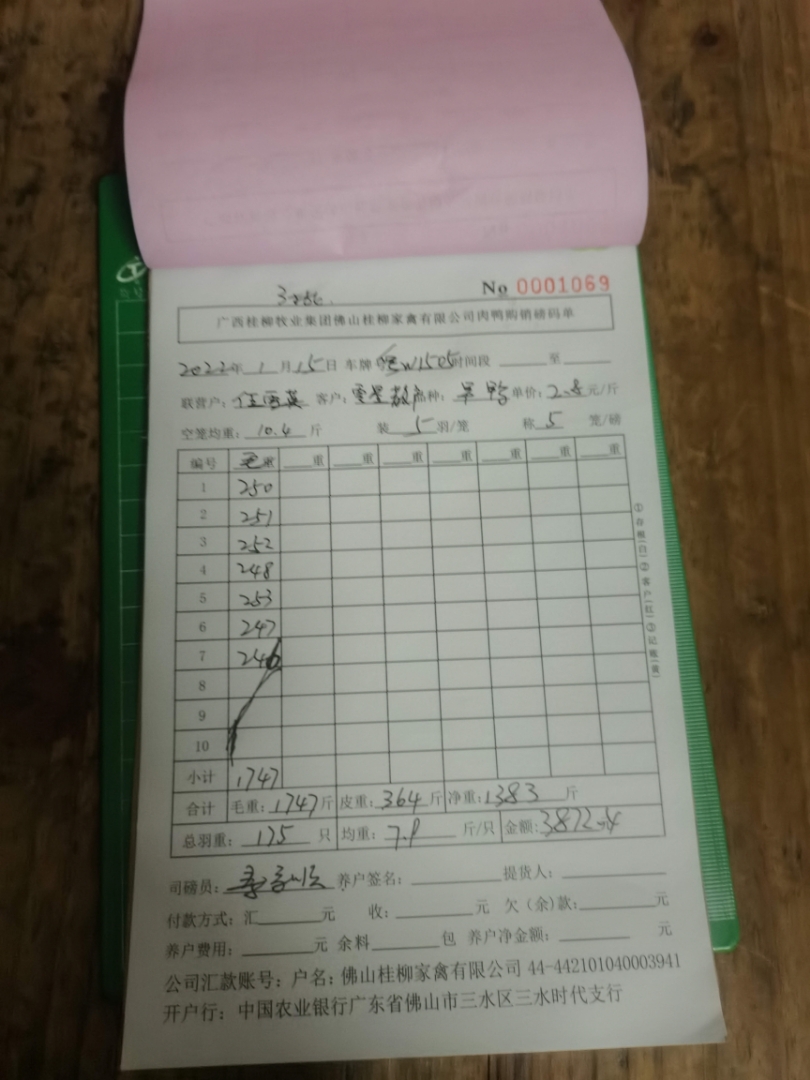 No 0001069
广西桂柳牧业集团佛山桂柳家禽有限公司肉鸭购销磅码单
2022年 1 月 15 日 车牌 W1505 时间段 至
联营户: 客户: 品种: 鸭 单价: 2.8 元/斤
空笼均重: 10.4 斤 装 5 羽/笼 称 5 笼/磅
编号 毛重 重 重 重 重 重 重 重
1 250
2 251
3 252
4 248
5 253
6 247
7 246
8
9
10
小计 1747
合计 毛重: 1747 斤 皮重: 364 斤 净重: 1383 斤
总羽重: 175 只 均重: 7.9 斤/只 金额: 3872.4
司磅员: 养户签名: 提货人:
付款方式: 汇 元 收: 元 欠(余)款: 元
养户费用: 元 余料 包 养户净金额: 元
公司汇款账号: 户名: 佛山桂柳家禽有限公司 44-442101040003941
开户行: 中国农业银行广东省佛山市三水区三水时代支行
①存根(白)②客户(红)③记账(黄)